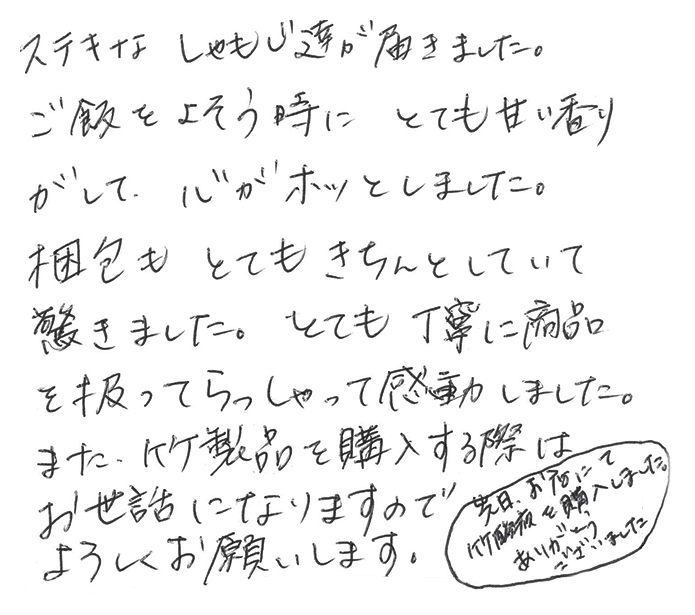 ステキな しゃもじ達が届きました。
ご飯をよそう時に とても甘い香り
がして、心がホッとしました。
梱包も とてもきちんとしていて
驚きました。とても 丁寧に商品
を扱ってらっしゃって感動しました。
また、竹製品を購入する際は
お世話になりますので
よろしくお願いします。
先日、お宅にて
竹酢液を購入しました。
ありがとう
ございました